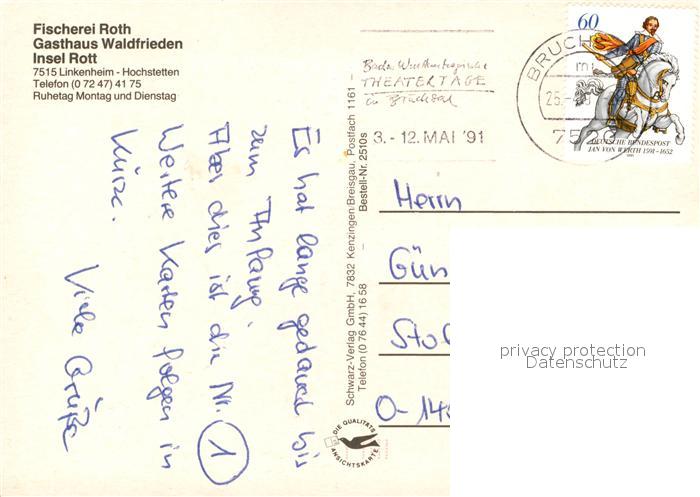 Fischerei Roth
Gasthaus Waldfrieden
Insel Rott
7515 Linkenheim - Hochstetten
Telefon (0 72 47) 41 75
Ruhetag Montag und Dienstag
Es hat lange gedauert bis
zum Anfang.
Aber dies ist die Nr. 1
Weitere Karten folgen in
Kürze.
Viele Grüße
Schwarz-Verlag GmbH, 7832 Kenzingen/Breisgau, Postfach 1161 -
Telefon (0 76 44) 16 58
Bestell-Nr. 2510s
DIE QUALITÄTS
ANSICHTSKARTE
THEATERTAGE
in Bruchsal
3. - 12. MAI '91
BRUCH
25.
75
60
DEUTSCHE BUNDESPOST
JAN VON WERTH 1591-1652
Herrn
Gün
Stol
O-14
privacy protection
Datenschutz